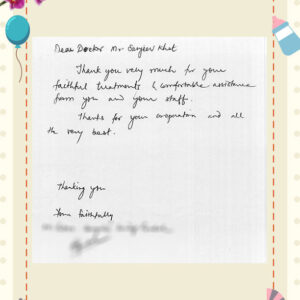 Dear Doctor Mr Sanjeev Khot
Thank you very much for your
faithful treatments & comfortable assistance
from you and your staff.
Thanks for your cooperation and all
the very best.
Thanking you
Your faithfully